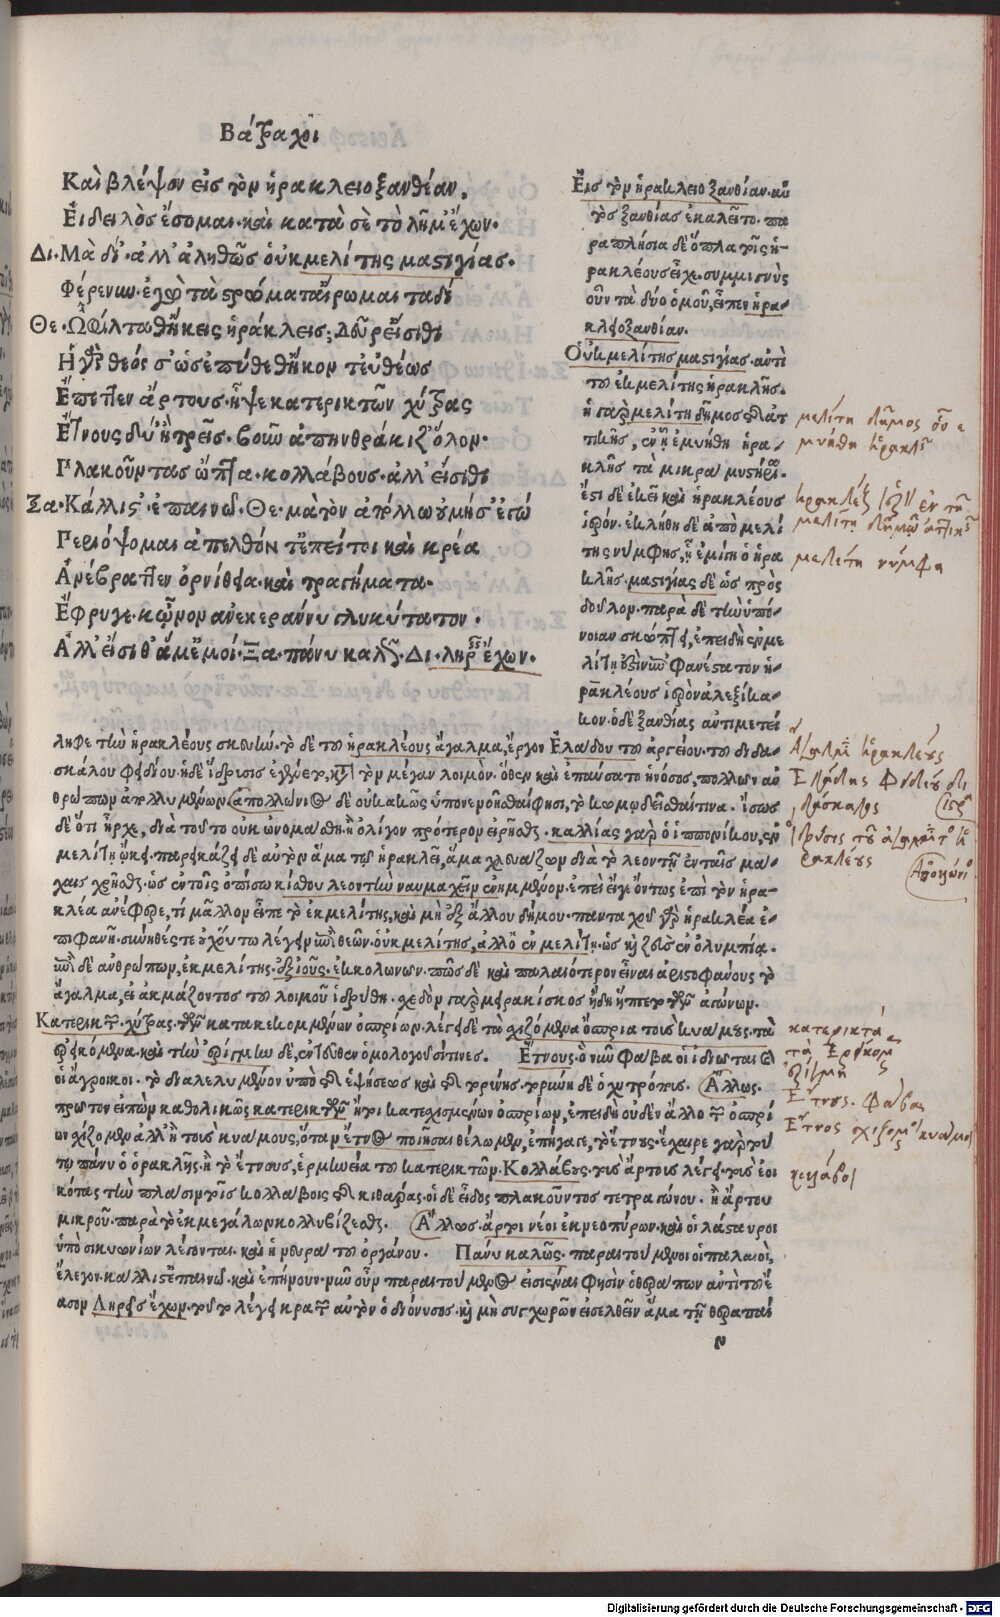 Βάτραχοι
Καὶ βλέψον εἰς τὸν ἡρακλειοξανθίαν,
Εἰ δειλὸς ἔσομαι· καὶ κατὰ σὲ τὸ λῆμ' ἔχων·
Δι· Μὰ δί'· ἀλλ' ἀληθῶς οὑκ μελίτης μαστιγίας·
Φέρε νυν· ἐγὼ τὰ στρώματ' αἴρωμαι ταδί
Θε· Ὦ φίλταθ' ἥκεις ἡράκλεις; Δεῦρ' εἴσιθι
Ἡ γὰρ θεός σ' ὡς ἐπύθεθ' ἥκοντ' εὐθέως
Ἔπεττεν ἄρτους· ἧψε κατερικτῶν χύτρας
Ἔτνους δύ' ἢ τρεῖς· βοῦν ἀπηνθράκιζ' ὅλον·
Πλακοῦντας ὤπτα· κολλάβους· ἀλλ' εἴσιθι
Ξα· Κάλλιστ'· ἐπαινῶ· Θε· μὰ τὸν ἀπόλλω οὐ μή σ' ἐγώ
Περιόψομαι ἀπελθόντ' ἐπεί τοι καὶ κρέα
Ἀνέβραττεν ὀρνίθεια· καὶ τραγήματα·
Ἔφρυγε· κᾦνον ἀνεκεράννυ γλυκύτατον·
Ἀλλ' εἴσιθ' ἅμ' ἐμοί· Ξα· πάνυ καλῶς· Δι· ληρεῖς ἔχων·
Εἰς τὸν ἡρακλειοξανθίαν· αὐ
τὸς ξανθίας ἐκαλεῖτο· πα
ραπλήσια δὲ ὅπλα τοῖς ἡ-
ρακλέους εἶχε· συμμιγνὺς
οὖν τὰ δύο ὁμοῦ, εἶπεν ἡρα-
κλειοξανθίαν·
Οὑκ μελίτης μαστιγίας· ἀντὶ
τοῦ ἐκ μελίτης ἡρακλῆς·
ἡ γὰρ μελίτη δῆμος τῆς ἀτ
τικῆς, ἐν ᾗ ἐμυήθη ἡρα-
κλῆς τὰ μικρὰ μυστήρια·
ἔστι δὲ ἐκεῖ καὶ ἡρακλέους
ἱερόν· ἐκλήθη δὲ ἀπὸ μελί
της νύμφης, ᾗ ἐμίγη ὁ ἡρα
κλῆς· μαστιγίας δὲ ὡς πρὸς
δοῦλον· παρὰ δὲ τὴν ὑπό-
νοιαν σκώπτει, ἐπειδὴ ἐν με
λίτῃ ἐστὶν ἐπιφανέστατον ἡ-
ρακλέους ἱερὸν ἀλεξικά-
κου· ὁ δὲ ξανθίας ἀντιμετεί
ληφε τὴν ἡρακλέους σκευήν· τὸ δὲ τοῦ ἡρακλέους ἄγαλμα, ἔργον Ἐλάδου τοῦ ἀργείου· τοῦ διδα-
σκάλου φειδίου· ἡ δὲ ἵδρυσις ἐγένετο, κατὰ τὸν μέγαν λοιμόν· ὅθεν καὶ ἐπαύσατο ἡ νόσος, πολλῶν ἀν
θρώπων ἀπολλυμένων· ἀπολλώνιος δὲ οὐ κακῶς ὑπονενοῆσθαί φησι, τὸ κωμῳδεῖσθαί τινα· ἴσως
δὲ ὅτι ἦρχε, διὰ τοῦτο οὐκ ὠνομάσθη· ἢ ὀλίγον πρότερον εἰρῆσθαι· καλλίας γὰρ ὁ ἱππονίκου, ἐν
μελίτῃ ᾤκει· παρεικάζει δὲ αὐτὸν ἅμα τῷ ἡρακλεῖ, ἅμα χλευάζων διὰ τὸ λεοντῇ ἐν ταῖς μά-
χαις χρῆσθαι· ὡς ἐν τοῖς ὀπίσω κύσθου λεοντὴν ναυμαχεῖν ἐνημμένον· ἐπεὶ ἐγγόντως ἐπὶ τὸν ἡρα-
κλέα ἀνέφερε, τί μᾶλλον εἶπε τὸ ἐκ μελίτης, καὶ μὴ ἐξ ἄλλου δήμου· πανταχοῦ γὰρ ἡρακλέα ἐ-
πιφανῆ· σύνηθές τε οὕτω λέγειν ἐπὶ θεῶν· οὑκ μελίτης, ἀλλ' ὁ ἐν μελίτῃ· ὡς καὶ ζεὺς ἐν ὀλυμπίᾳ·
ἐπὶ δὲ ἀνθρώπων, ἐκ μελίτης· ἐξ ἰοῦς· ἐκ κολωνῶν· πῶς δὲ καὶ παλαιότερον εἶναι ἀριστοφάνους τὸ
ἄγαλμα, εἰ ἀκμάζοντος τοῦ λοιμοῦ ἱδρύθη· σχεδὸν γὰρ μειρακίσκος ἤδη ἥπτετο τῶν ἀγώνων·
Κατερικτῶν χύτρας· τῶν κατακεκομμένων ὀσπρίων· λέγει δὲ τὰ σχιζόμενα ὄσπρια τοὺς κυάμους· τὰ
ἐρεικόμενα· καὶ τὴν ἐρίγμην δὲ, ἐντεῦθεν ὁμολογοῦσί τινες· Ἔτνους· ὃ νῦν φάβα οἱ ἰδιῶται καὶ
οἱ ἄγροικοι· τὸ διαλελυμένον ὑπὸ τῆς ἑψήσεως καὶ τῆς τρυήνης· τρυήνη δὲ ὁ χυτρόπους· Ἄλλως·
πρῶτον εἰπὼν καθολικῶς κατερικτῶν ἤτοι κατεσχισμένων ὀσπρίων, ἐπειδὴ οὐδὲν ἄλλο τῶν ὀσπρί
ων σχίζομεν ἀλλ' ἢ τοὺς κυάμους, ὅταν ἔτνος ποιῆσαι θέλωμεν, ἐπήγαγε, τὸ ἔτνους· ἔχαιρε γὰρ τού
τῳ πάνυ ὁ ἡρακλῆς· ἢ τὸ ἔτνους, ἑρμηνεία τοῦ κατερικτῶν· Κολλάβους· τοὺς ἄρτους λέγει· τοὺς ἐοι
κότας τὴν πλάσιν τοῖς κολλάβοις τῆς κιθάρας· οἱ δὲ εἶδος πλακοῦντος τετραγώνου· ἢ ἄρτου
μικροῦ· παρὰ τὸ ἐκ μεγάλων κολλυβίζεσθαι· Ἄλλως· ἄρτοι νέοι ἐκ νεοπύρων· καὶ οἱ λάσταυροι
ὑπὸ σικυωνίων λέγονται· καὶ ἡ νευρὰ τοῦ ὀργάνου· Πάνυ καλῶς· παραιτούμενοι οἱ παλαιοὶ,
ἔλεγον· κάλλιστ' ἐπαινῶ· καὶ ἐπῄνουν· νῦν οὖν παραιτούμενος εἰσιέναι φησὶν ὁ θεράπων αὐτὶ τοῦ ἔ
ασον Ληρεῖς ἔχων· τοῦτο λέγει κρατῶν αὐτὸν ὁ διόνυσος· καὶ μὴ συγχωρῶν εἰσελθεῖν ἅμα τῇ θεραπαί
ν
μελίτη δῆμος οὗ ἐ
μυήθη ἡρακλῆς
μελίτη νύμφη
κατερικτά
ἐρίγμη
Ἔτνος· φάβα
κολάβοι
Digitalisierung gefördert durch die Deutsche Forschungsgemeinschaft - DFG